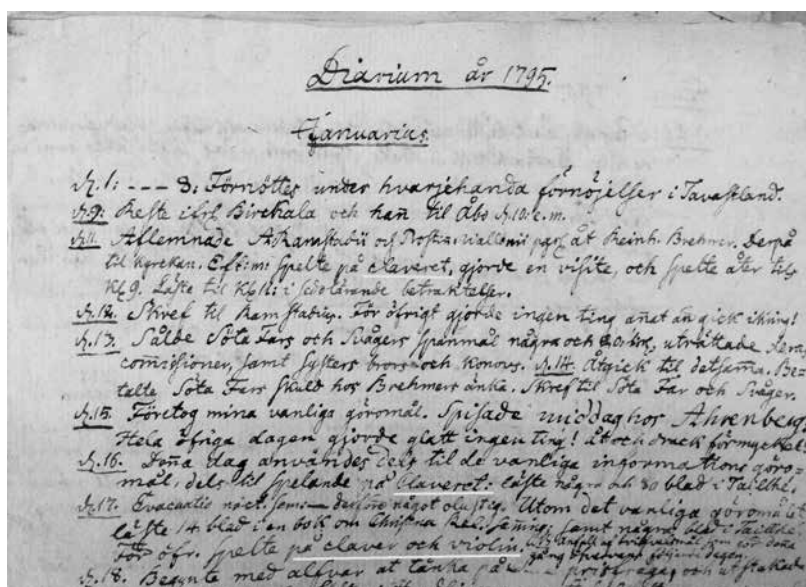 Diarium år 1795.
Januarius.
d. 1: --- 8: Förnöttes under hvarjehanda förnöjelser i Tavastland.
d. 9: Reste ifrå Birckala och han̄ til Åbo d. 10: e. m.
d. 11. Aflemnade A. Ramstadii och Wallenii åt Reinh. Brehmer. Derpå
til kyrckan. Eft: mi: spelte på claveret, gjorde en visite, och spelte åter til
Kl 9. Läste til Kl 11: i sedolärande betraktelser.
d. 12. Skref til Ramstadius. För öfrigt gjorde ingen ting an̄at än gick ikring!
d. 13. Sålde Söta Fars och Svågers Spanmål några och uträttade deras
com̄issioner, samt Systers brors och Konovs. d. 14. Åtgick til detsam̄a. Be-
talte Söta Fars skuld hos Brehmers änka. Skref til Söta Far och Svåger.
d. 15. Företog mina vanliga göromål. Spisade middag hos Ahrenberg.
Hela öfriga dagen gjorde glatt ingen ting! Åt och drack för mycket!
d. 16. Den̄a dag användes dels til de vanliga informations göro-
mål, dels til spelande på Claveret: läste några och 80 blad i
d. 17. Evacuatio noct. sem: något olustig. Utom det vanliga göromålet
läste 14 blad i en bok om Christna Rel: samt några blad i
För öfr. spelte på claver och violin.
d. 18. Begynte med alfvar at tänka på och utstakade